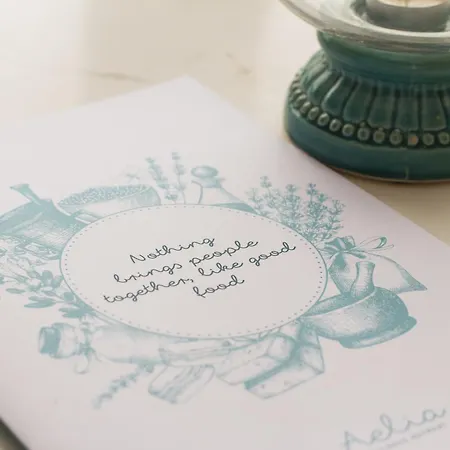 Nothing
brings people
together, like good
food
Aelia